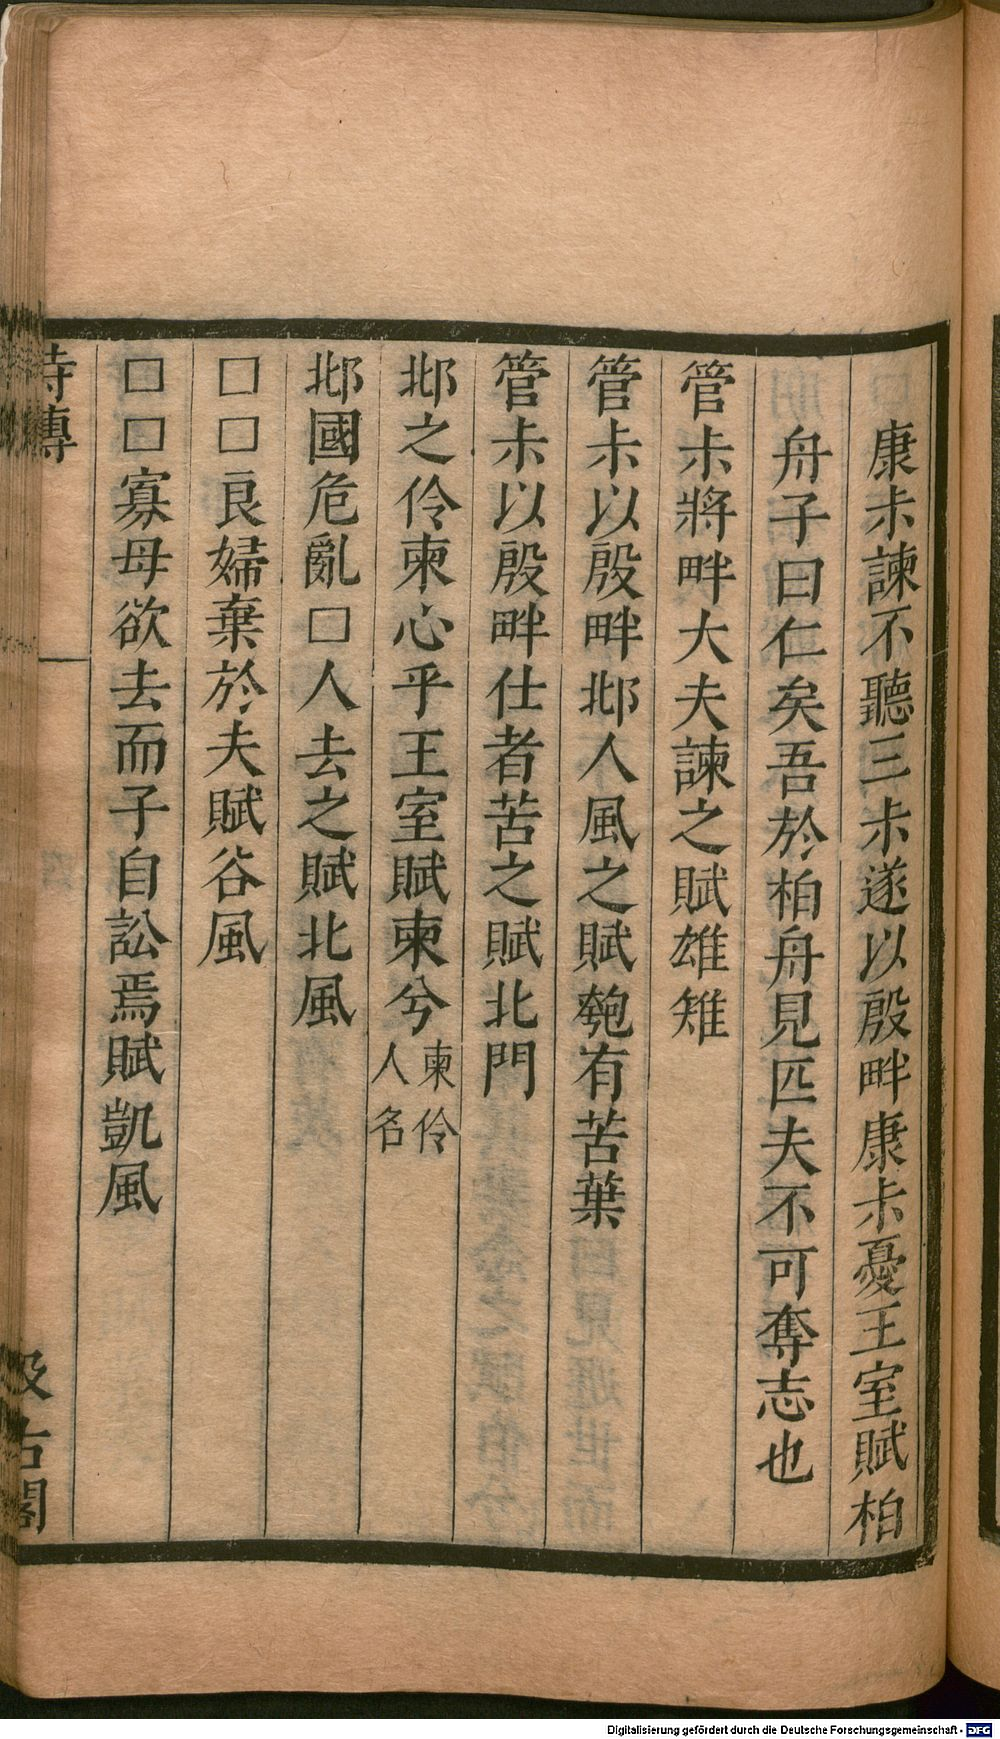 康尗諫不聽三尗遂以殷畔康尗憂王室賦柏
舟子曰仁矣吾於柏舟見匹夫不可奪志也
管尗將畔大夫諫之賦雄雉
管尗以殷畔邶人風之賦匏有苦葉
管尗以殷畔仕者苦之賦北門
邶之伶柬心乎王室賦柬兮柬伶人名
邶國危亂□人去之賦北風
□□良婦棄於夫賦谷風
□□寡母欲去而子自訟焉賦凱風
詩傳
汲古閣
Digitalisierung gefördert durch die Deutsche Forschungsgemeinschaft - DFG